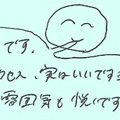 です。
実はいいです
雰囲気も悦いです